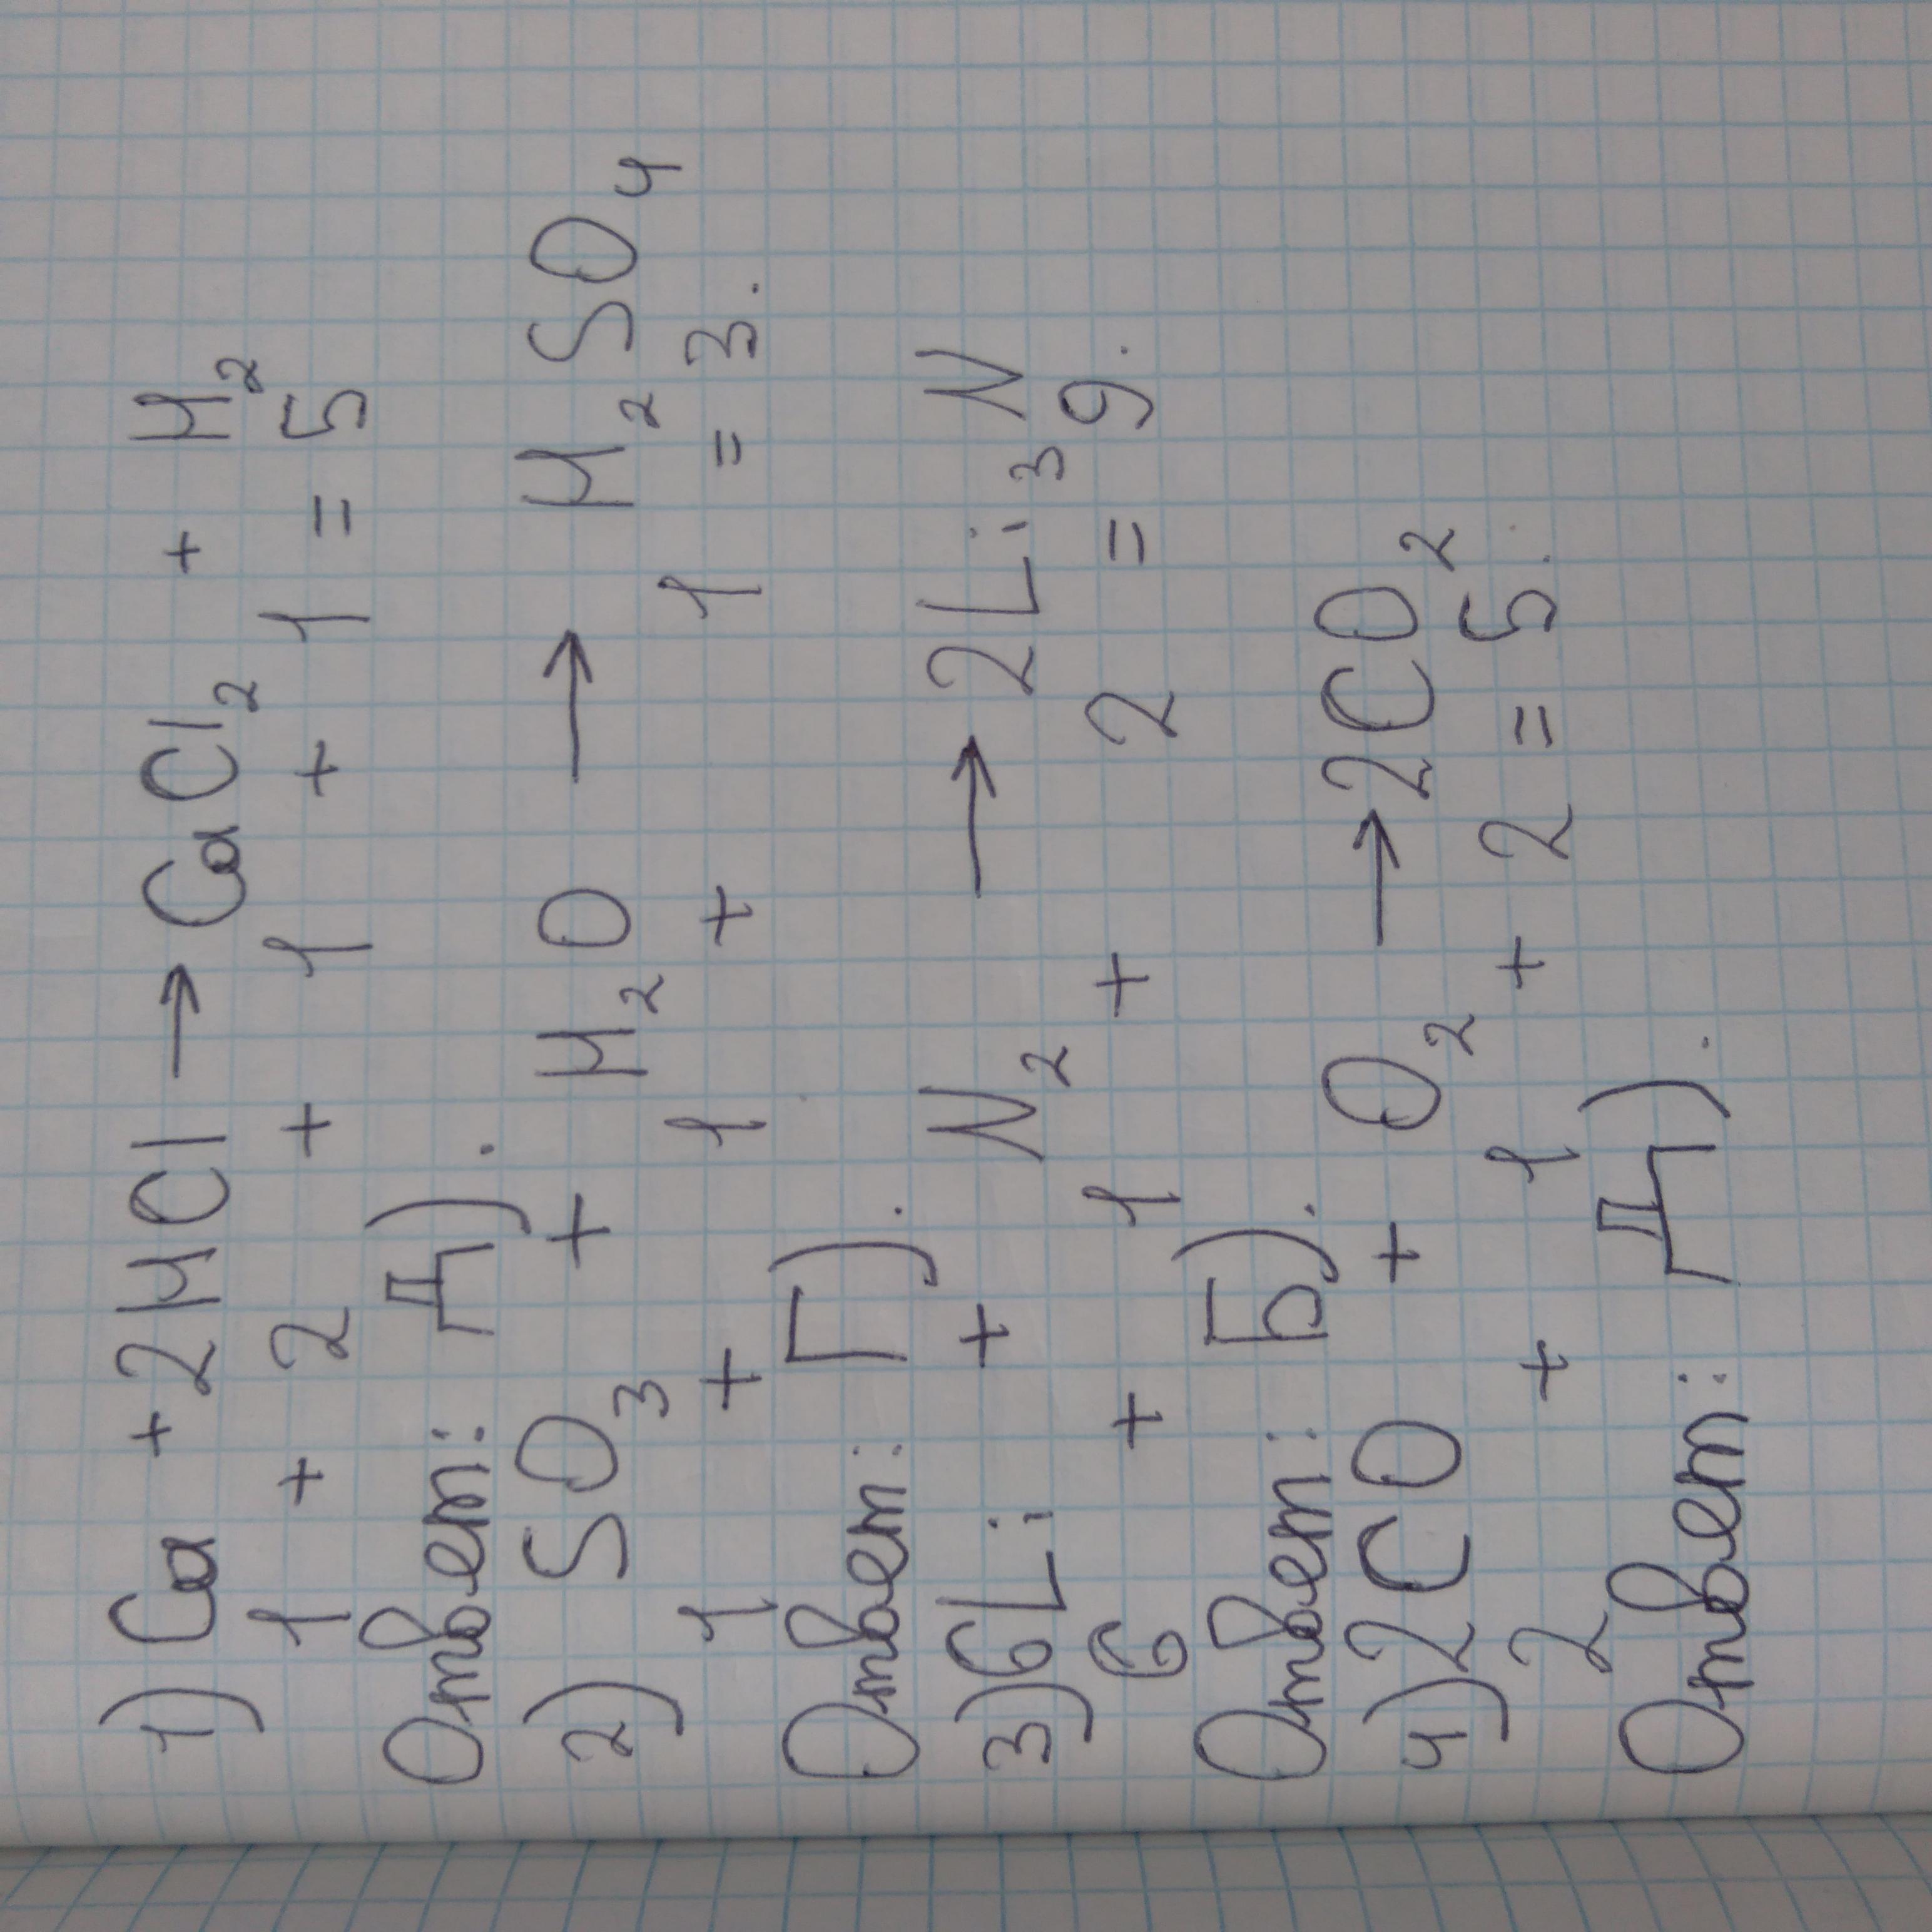 1) Ca + 2HCl → CaCl₂ + H₂
1 + 2 + 1 + 1 = 5
Ответ: Д).
2) SO₃ + H₂O → H₂SO₄
1 + 1 + 1 = 3.
Ответ: Г).
3) 6Li + N₂ → 2Li₃N
6 + 1 + 2 = 9.
Ответ: Б).
4) 2CO + O₂ → 2CO₂
2 + 1 + 2 = 5.
Ответ: Д).